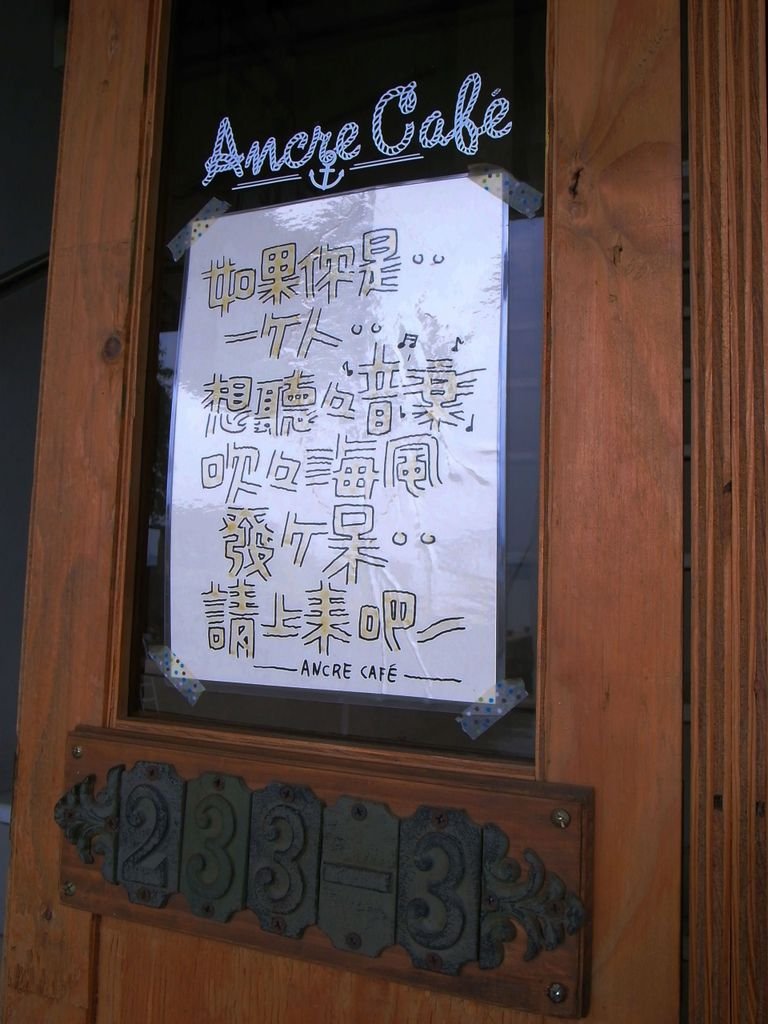 Ancre Café
如果你是..
一ケ人..
想聽々音樂
吹々海風
發ケ呆..
請上來吧～
ANCRE CAFÉ
233-3